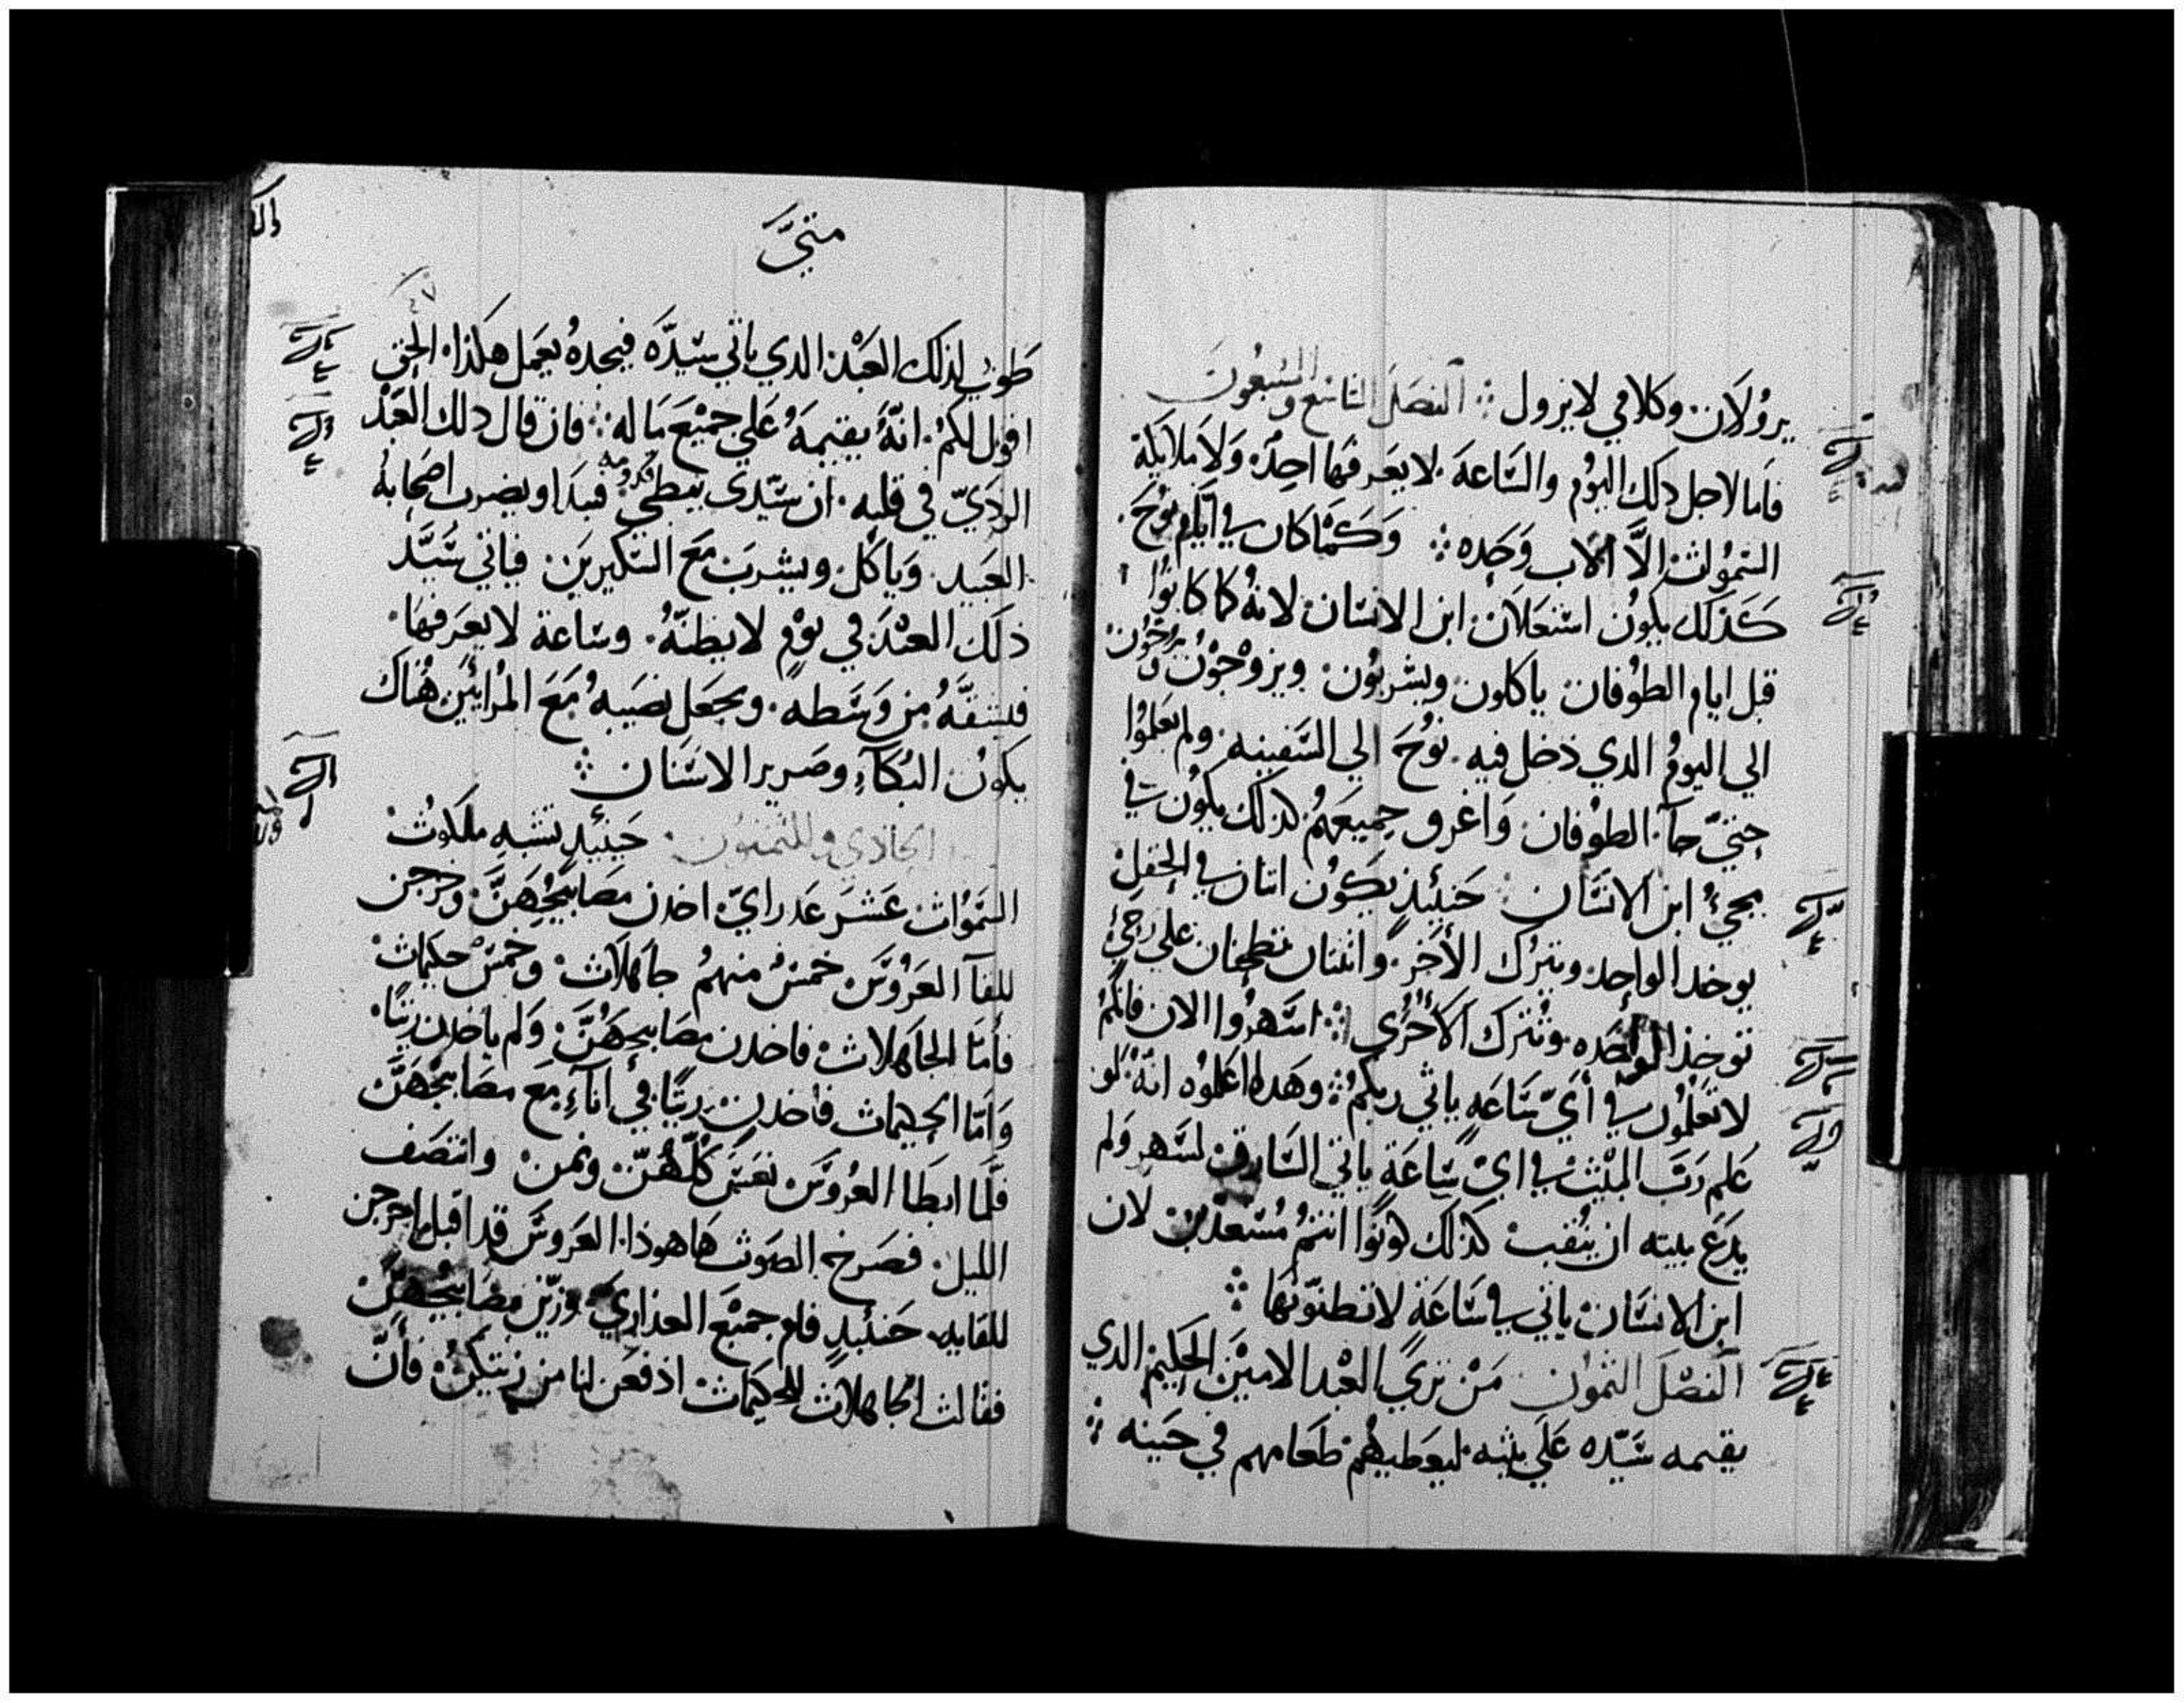 يرولان وكلامي لا يزول ܀ الفصل التاسع والسبعون
فاما لاجل دلك اليوم والساعة لا يعرفها احد ولا ملايكة
السموات الا الاب وحده ܀ وكما كان في ايام نوح
كذلك يكون استعلان ابن الانسان لانه كما كانوا
قبل ايام الطوفان ياكلون ويشربون ويزوجون
الي اليوم الدي دخل فيه نوح الي السفينه ولم يعلموا
حتي جآ الطوفان واغرق جميعهم كذلك يكون في
مجيء ابن الانسان حينيذ يكون اتنان في الحقل
يوخد الواحد ويترك الأخر واثنتان تطحنان علي رحي
توخذ الواحده وتترك الأخري ܀ اسهروا الان فانكم
لا تعلمون في أي ساعه ياتي ربكم ܀ وهده اعلموه انه لو
علم رب البيت في اي ساعة ياتي السارق لسهر ولم
يدع بيته ان ينقب كذلك كونوا انتم مستعدين لان
ابن الانسان ياتي في ساعة لا تظنونها ܀
الفصل الثمون من تري العبد الامين الحكيم الدي
يقيمه سيده علي بيته ليعطيهم طعامهم في حينه ܀
متي
طوبي لذلك العبد الدي ياتي سيده فيجده يعمل هكذا الحق
اقول لكم انه يقيمه علي جميع ما له ܀ فان قال دلك العبد
الردي في قلبه ان سيدي يبطي قدومه فبدا ويضرب اصحابه
العبيد وياكل ويشرب مع السكيرين فياتي سيد
ذلك العبد في يوم لا يظنه وساعة لا يعرفها
فيشقه من وسطه ويجعل نصيبه مع المرائين هناك
يكون البكآء وصرير الاسنان ܀
الحادي والثمنون حينيد تشبه ملكوت
السموات عشر عدراي اخدن مصابيحهن وخرجن
للقآ العروس خمس منهم جاهلات وخمس حكيمات
فأما الجاهلات فاخدن مصابيحهن ولم ياخدن زيتا
وأما الحكيمات فأخدن زيتا في انآء مع مصابيحهن
فلما ابطا العروس نعسن كلهن ونمن وانتصف
الليل فصرخ الصوت هاهوذا العروس قد اقبل اخرجن
للقايه حينيد قام جميع العذاري وزين مصابيحهن
فقالت الجاهلات للحكيمات ادفعن لنا من زيتكن فأن